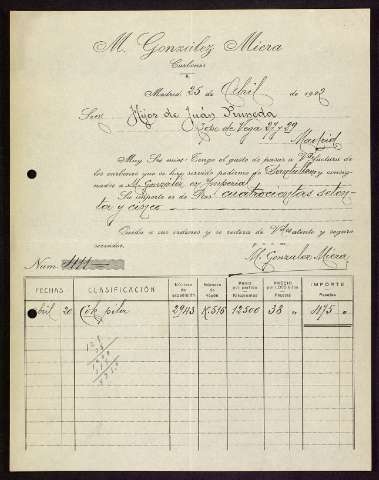 M. González Miera
Carbones
Madrid 25 de Abril de 1902
Sres Hijos de Juán Pruneda
Lope de Vega 27 y 29
Madrid
Muy Sres míos: Tengo el gusto de pasar a Vds factura
de los carbones que se han servido pedirme de Santullan y consig-
nados a M. González en Imperial
Su importe es de Ptas cuatrocientas seten-
ta y cinco
Quedo a sus órdenes y se reitera de Vds atento y seguro
servidor.
M. González Miera
Núm. 411
FECHAS CLASIFICACIÓN Número de expedición Número de vagón Peso por partida Kilogramos PRECIO por 1.000 kilos Pesetas IMPORTE Pesetas
Abril 20 Cok pilu 2943 K.516 12500 38 " 475 "